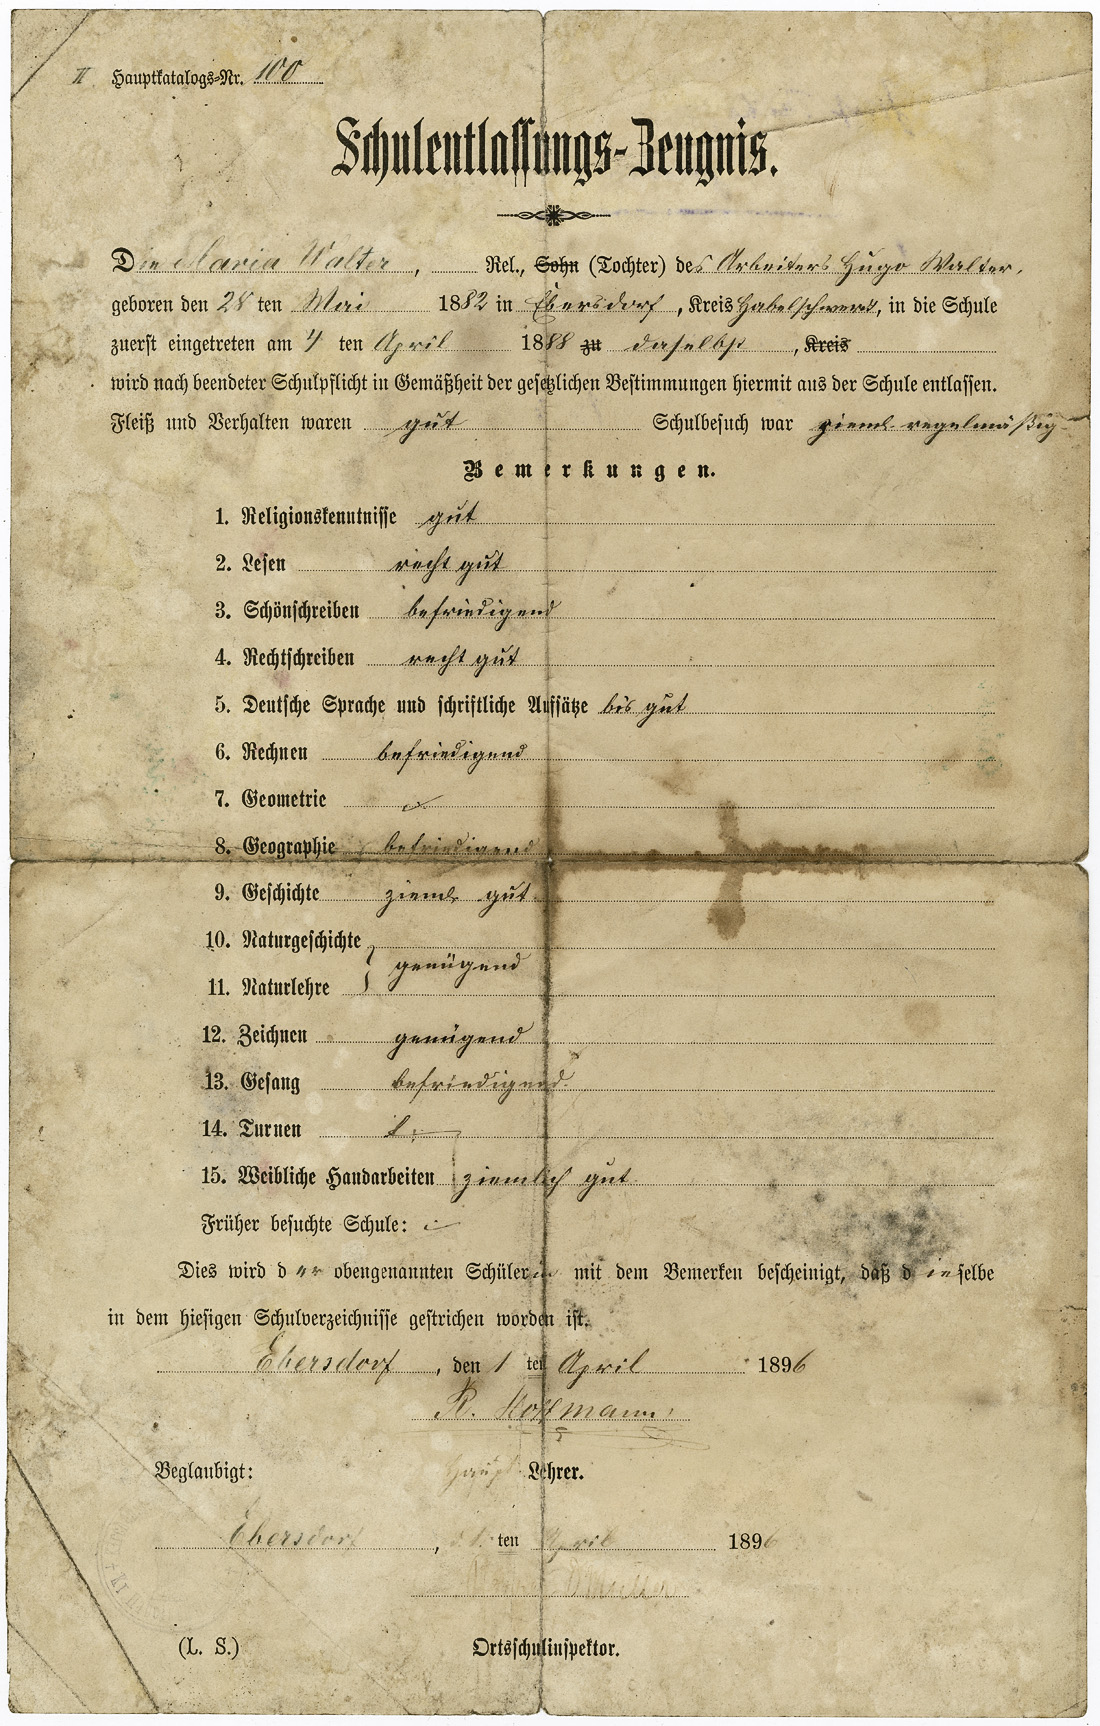 II Hauptkatalogs-Nr. 100
Schulentlassungs-Zeugnis.
Die Maria Walter, Rel., Sohn (Tochter) des Arbeiters Hugo Walter,
geboren den 28 ten Mai 1882 in Ebersdorf, Kreis Habelschwerdt, in die Schule
zuerst eingetreten am 4 ten April 1888 zu daselbst, Kreis
wird nach beendeter Schulpflicht in Gemäßheit der gesetzlichen Bestimmungen hiermit aus der Schule entlassen.
Fleiß und Verhalten waren gut Schulbesuch war zieml. regelmäßig
Bemerkungen.
1. Religionskenntnisse gut
2. Lesen recht gut
3. Schönschreiben befriedigend
4. Rechtschreiben recht gut
5. Deutsche Sprache und schriftliche Aufsätze bis gut
6. Rechnen befriedigend
7. Geometrie
8. Geographie befriedigend
9. Geschichte zieml. gut.
10. Naturgeschichte
genügend
11. Naturlehre
12. Zeichnen genügend
13. Gesang befriedigend.
14. Turnen
15. Weibliche Handarbeiten ziemlich gut.
Früher besuchte Schule:
Dies wird der obengenannten Schülerin mit dem Bemerken bescheinigt, daß dieselbe
in dem hiesigen Schulverzeichnisse gestrichen worden ist.
Ebersdorf, den 1 ten April 1896
R. Hoffmann
Beglaubigt: Haupt Lehrer.
Ebersdorf, d. 1. ten April 1896
(L. S.) Ortsschulinspektor.